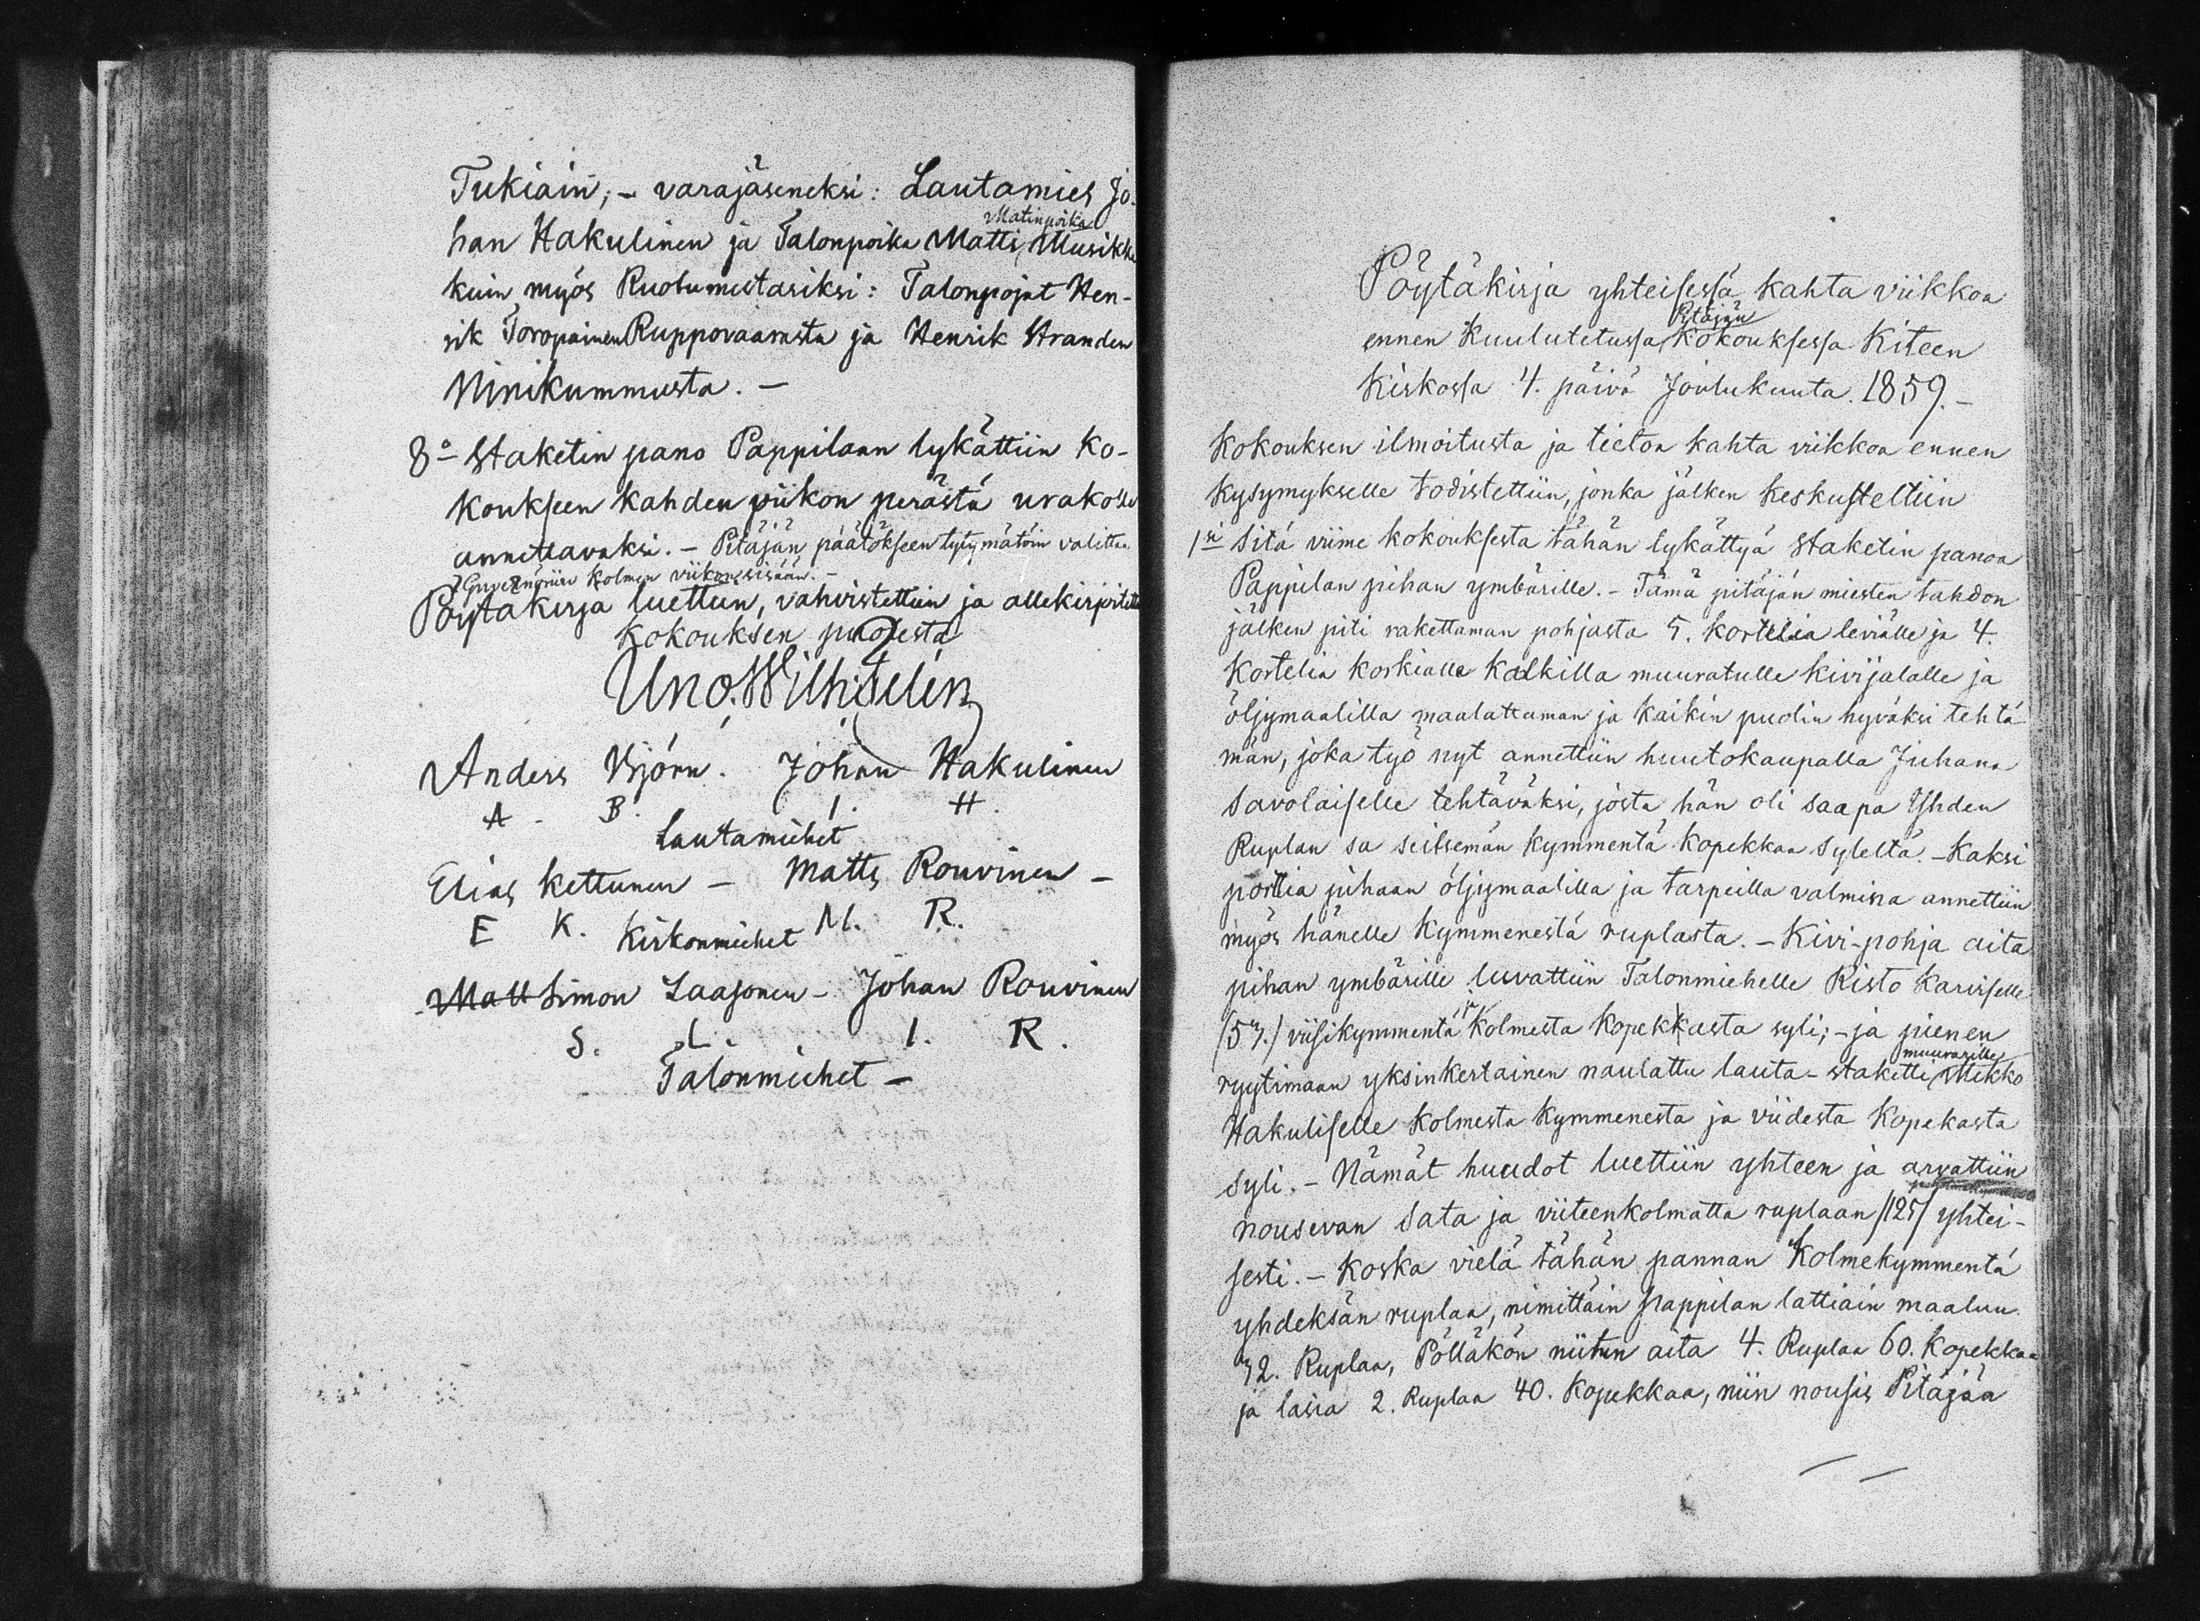 Tukiain; – varajäseneksi: Lautamies Jo-
han Hakulinen ja Talonpoika Matti Matinpoika Musikka
kuin myös Ruotumestariksi: Talonpojat Hen-
rik Toropainen Ruppovaarasta ja Henrik Hranden
Niinikummusta. –
8º Staketin pano Pappilaan lykättiin Ko-
koukseen kahden viikon perästä urakolle
annettavaksi. – Pitäjän päätökseen tytymätöin valittaa
Guvernöriin kolmen viikon sisään. –
Pöytäkirja luettiin, vahvistettiin ja allekirjoitetti
Kokouksen puolesta
Uno Wilh:
Anders Björn. Johan Hakulinen
A. B. I. H.
Lautamiehet
Elias Kettunen – Matts Rouvinen –
E K. Kirkonmiehet M. R.
Matt Simon Laasonen – Johan Rouvinen
S. L. I. R.
Talonmiehet –
Pöytäkirja yhteisessä kahta viikkoa
ennen kuulutetussa Pitäjän Kokouksessa Kiteen
Kirkossa 4. päivä Joulukuuta. 1859. –
Kokouksen ilmoitusta ja tietoa kahta viikkoa ennen
Kysymykselle todistettiin, jonka jälken keskusteltiin
1si Sitä viime kokouksesta tähän lykättyä staketin panoa
Pappilan pihan ymbärille. – Tämä pitäjän miesten tahdon
jälken piti rakettaman pohjasta 5. kortelia leviälle ja 4.
Kortelia korkialle kalkilla muuratulle kivijalalle ja
öljymaalilla maalattaman ja kaikin puolin hyväksi tehtä-
män, joka työ nyt annettiin huutokaupalla Juhana
Savolaiselle tehtäväksi, josta hän oli saapa Yhden
Ruplan sa seitsemän kymmentä kopekkaa syleltä. – Kaksi
porttia pihaan öljymaalilla ja tarpeilla valmisna annettiin
myös hänelle kymmenestä ruplasta. – Kivi-pohja aita
pihan ymbärille luvattiin Talonmiehelle Risto Karviselle
(53.) viisikymmentä ja kolmesta kopekkasta syli; – ja pienen
ryytimaan yksinkertainen naulattu lauta-staketti muurarille Mikko
Hakuliselle kolmesta kymmenestä ja viidestä kopekasta
syli. – Nämät huudot luettiin yhteen ja arvattiin
nousevan Sata ja viiteenkolmatta ruplaan /125/ yhtei-
sesti. – Koska vielä tähän pannan kolmekymmentä
yhdeksän ruplaa, nimittäin pappilan lattiain maaluu
32. Ruplaa, Pölläkön niitun aita 4. Ruplaa 60. kopekkaa
ja lasia 2. Ruplaa 40. kopekkaa, niin nousis Pitäjän